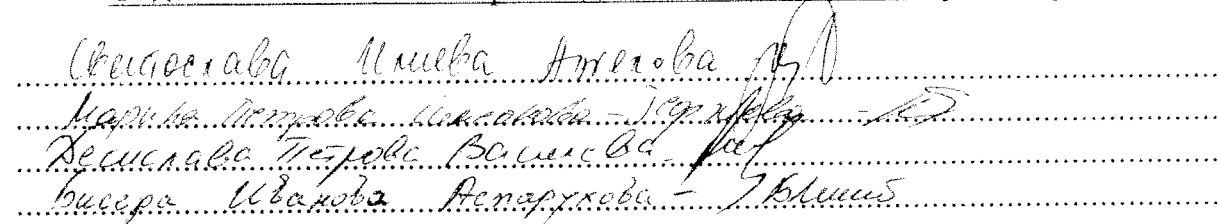 Светослава Илиева Ангелова
Марина Петрова
Десислава Петрова Василева
Бисера Иванова Аспарухова -